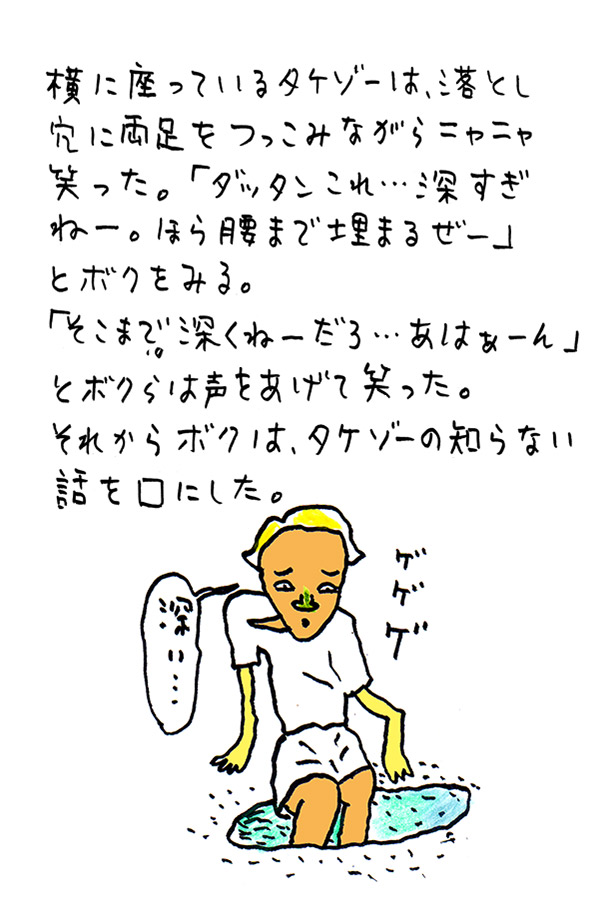 横に座っているタケゾーは、落とし
穴に両足をつっこみながらニヤニヤ
笑った。「ダッタンこれ…深すぎ
ねー。ほら腰まで埋まるぜー」
とボクをみる。
「そこまで深くねーだろ…あはぁーん」
とボクらは声をあげて笑った。
それからボクは、タケゾーの知らない
話を口にした。
深い…
ゲゲゲ